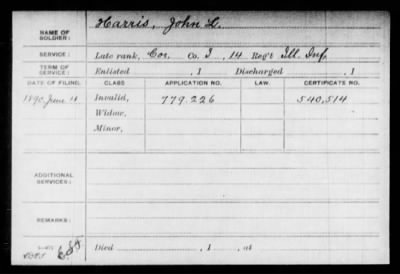 NAME OF SOLDIER: Harris, John L.
SERVICE: Late rank, Cor. Co. I, 14 Reg't Ill. Inf.
TERM OF SERVICE: Enlisted , 1 Discharged , 1
DATE OF FILING. CLASS APPLICATION NO. LAW. CERTIFICATE NO.
1890 June Invalid, 779.226 540,514
Widow,
Minor,
ADDITIONAL SERVICES:
REMARKS:
Died , 1 , at